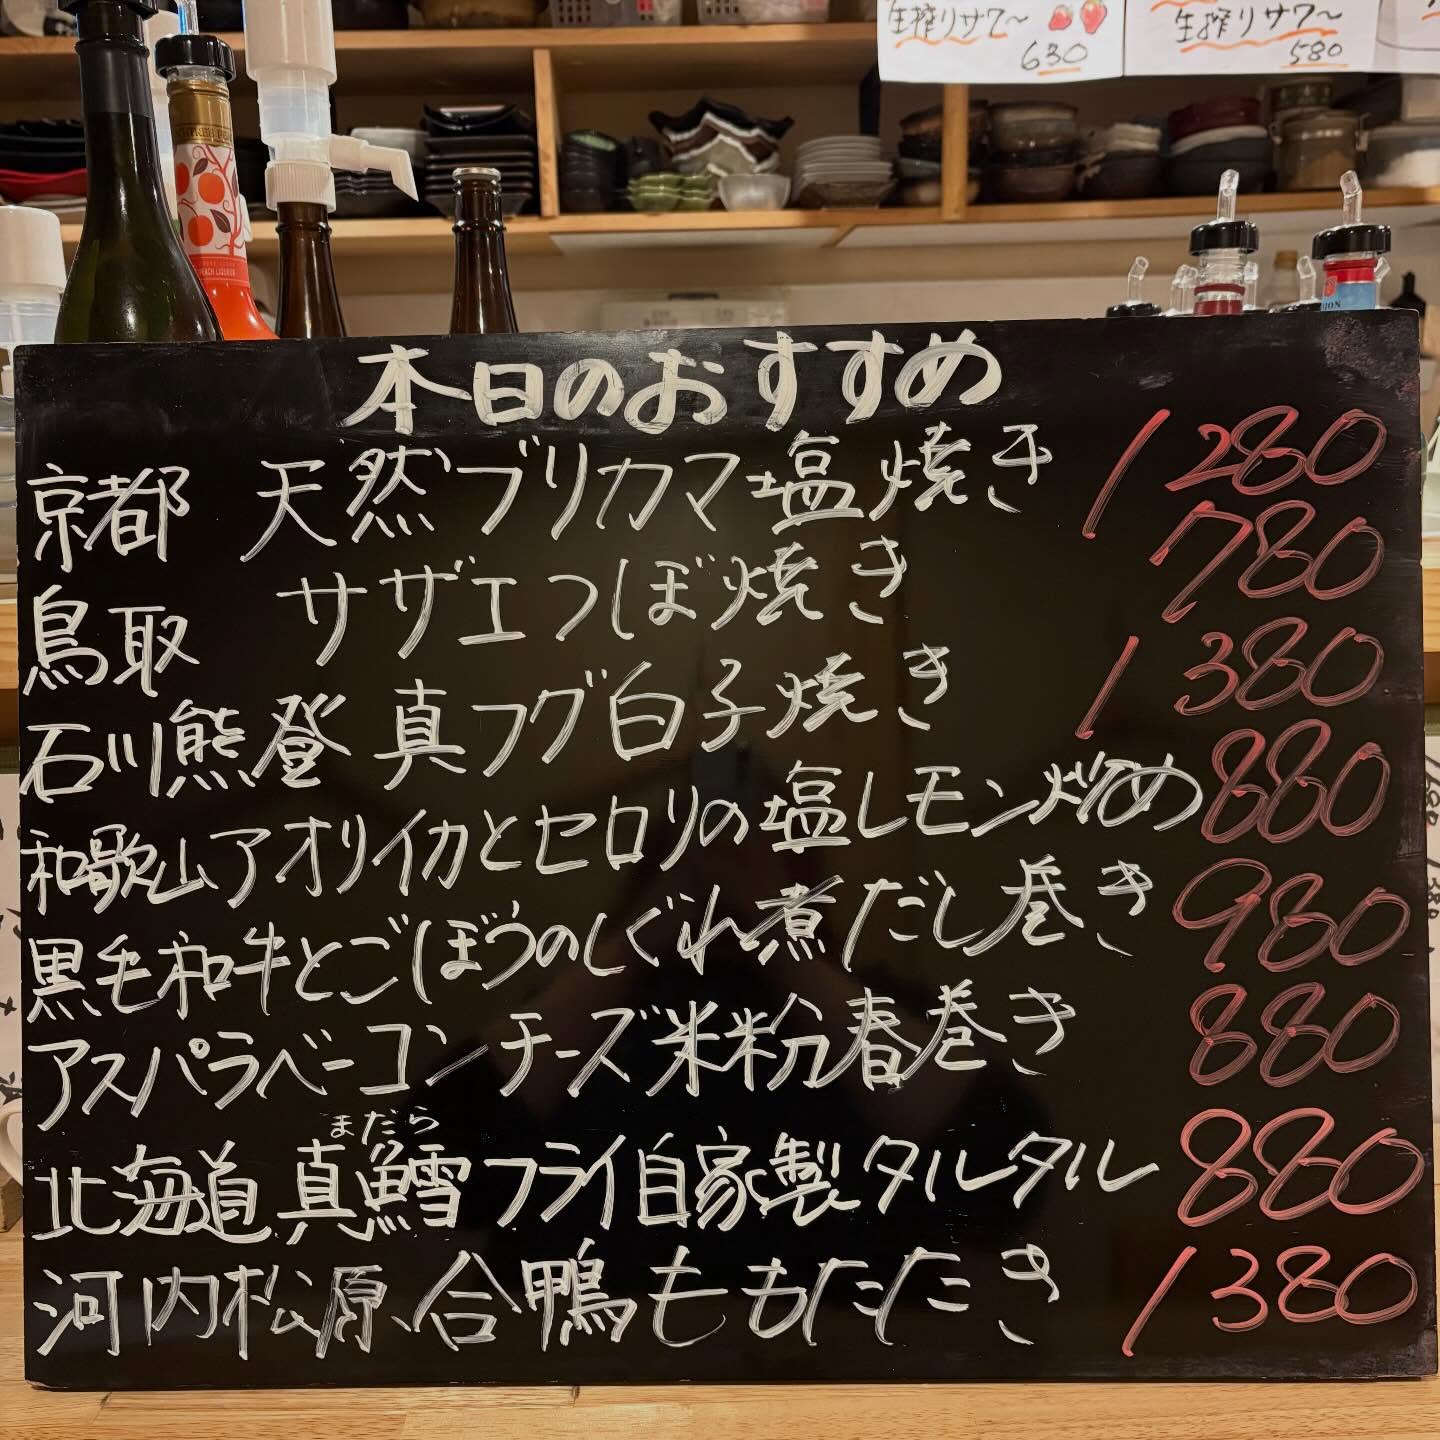 生搾りサワ〜
630
生搾りサワ〜
580
本日のおすすめ
京都 天然ブリカマ塩焼き 1280
鳥取 サザエつぼ焼き 780
石川熊登 真フグ白子焼き 1380
和歌山アオリイカとセロリの塩レモン炒め 880
黒毛和牛とごぼうのしぐれ煮だし巻き 980
アスパラベーコンチーズ米粉春巻き 880
まだら
北海道 真鱈フライ自家製タルタル 880
河内松原、合鴨ももたたき 1380